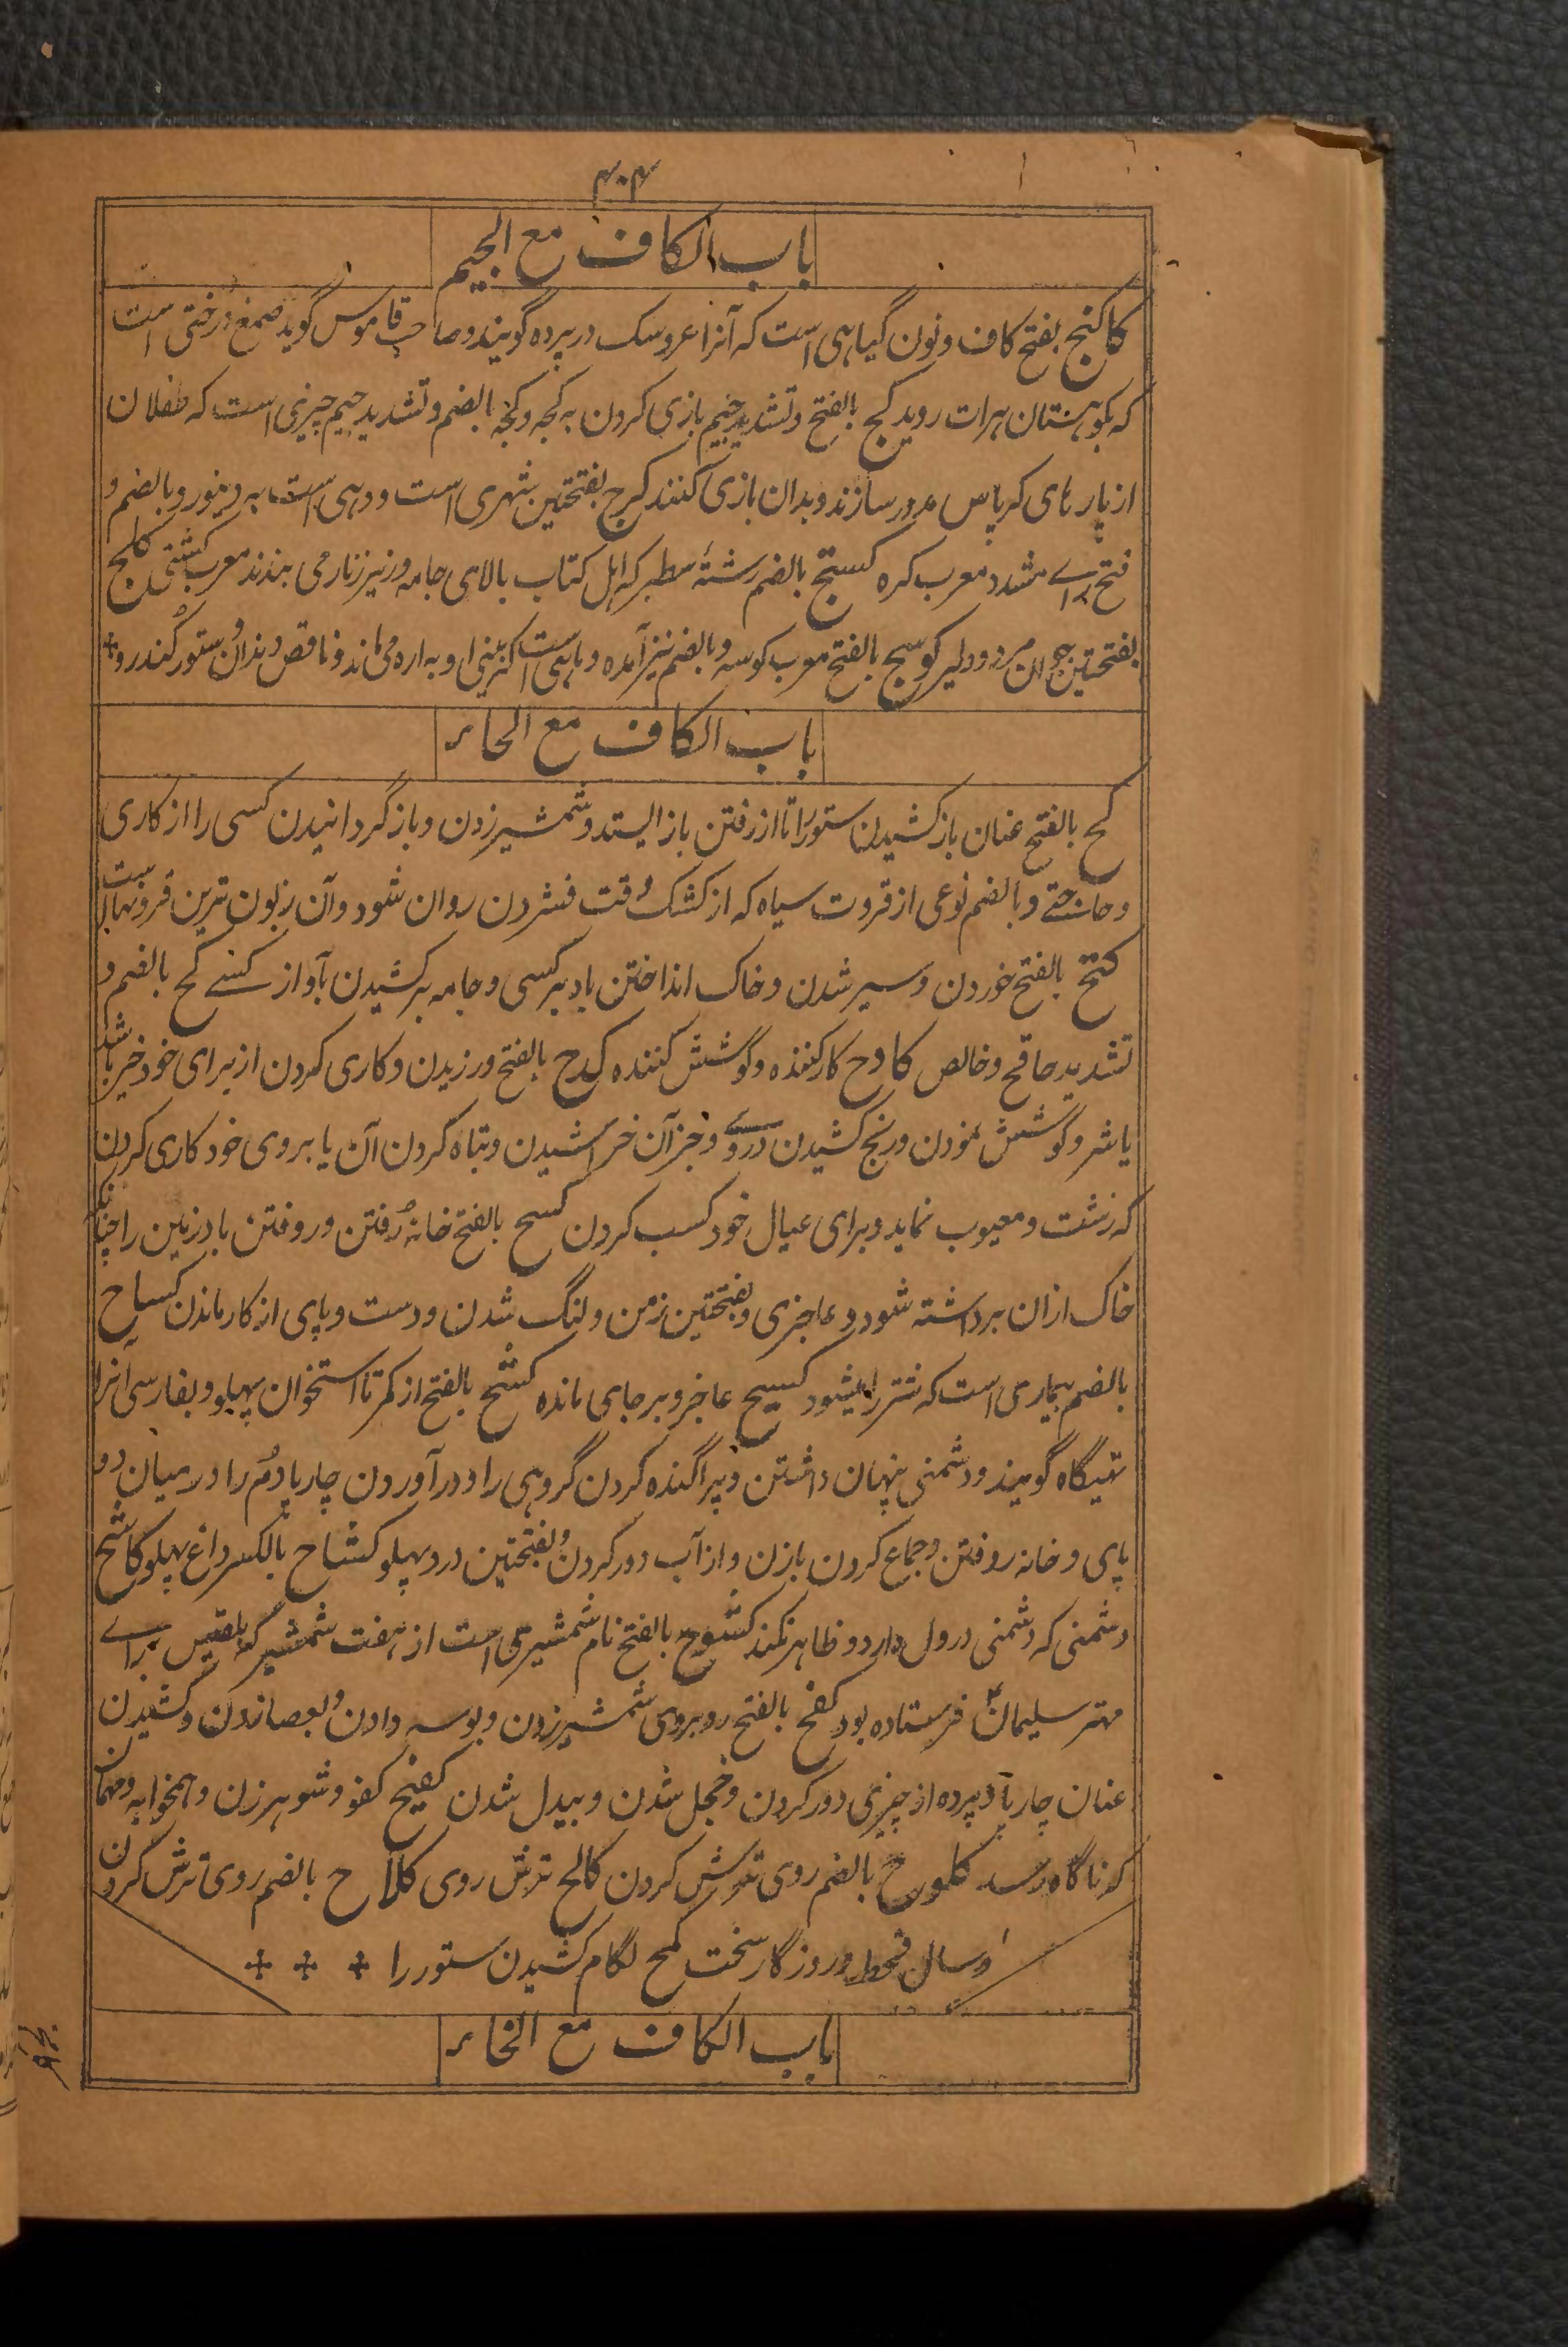 ۴۰۴
باب الکاف مع الجیم
کاکنج بفتح کاف و نون گیاهی است که آنرا عروسک در پرده گویند و صاحب قاموس گوید صمغ درختی است
که بکوهستان هرات روید کج بالفتح و تشدید جیم بازی کردن به کجه و کجه بالضم و تشدید جیم چیزی است که طفلان
از پارهای کرپاس مدور سازند و بدان بازی کنند کرج بفتحتین شهری است و دهی است به دینور و بالضم و
فتح رای مشدد معرب کره کستیج بالضم رشتهٔ سطبر که اهل کتاب بالای جامه و زیر زنار می بندند معرب کشتی کلج
بفتحتین جوان مرد و دلیر کوسج بالفتح معرب کوسه و بالضم نیز آمده و ماهی است کز بینی او به اره می ماند و ناقص دندان و ستور کندرو
باب الکاف مع الحاء
کبح بالفتح عنان باز کشیدن ستور را تا از رفتن باز ایستد و شمشیر زدن و باز گردانیدن کسی را از کاری
و حاجتے و بالضم نوعی از قروت سیاه که از کشک وقت فشردن روان شود و آن زبون ترین قروتها است
کتح بالفتح خوردن و سیر شدن و خاک انداختن باد بر کسی و جامه بر کشیدن بآواز کسے کح بالضم و
تشدید حا قح و خالص کادح کار کننده و کوشش کننده کدح بالفتح ورزیدن و کاری کردن از برای خود خیر باشد
یا شر و کوشش نمودن و رنج کشیدن در روے و جز آن خراشیدن و تباه کردن آن یا بروی خود کاری کردن
که زشت و معیوب نماید و برای عیال خود کسب کردن کسح بالفتح خانه رُفتن و روفتن باد زمین را چنانکه
خاک ازان برداشته شود و عاجزی و بفتحتین زمن و لنگ شدن و دست و پای از کار ماندن کساح
بالضم بیماری است که شتر را میشود کسیح عاجز و بر جای مانده کشح بالفتح از کمر تا استخوان پهلو و بفارسی آنرا
تهیگاه گویند و دشمنی پنهان داشتن و پراگنده کردن گروهی را و درآوردن چارپا دُم را در میان دو
پای و خانه روفتن و جماع کردن بازن و از آب دور کردن و بفتحتین درد پهلو کشاح بالکسر داغ پهلو کاشح
دشمنی که دشمنی در دل دارد و ظاهر نکند کشوح بالفتح نام شمشیری است از هفت شمشیر که بلقیس براے
مهتر سلیمانؑ فرستاده بود کفح بالفتح روبروی شمشیر زدن و بوسه دادن و بعصا زدن و کشیدن
عنان چارپا و پرده از چیزی دور کردن و خجل شدن و بیدل شدن کفیح کفو و شوهر زن و همخوابه و مهمان
که ناگاه رسد کلوح بالضم روی ترش کردن کالح ترش روی کلاح بالضم روی ترش کردن
و سال قحط و روزگار سخت کمح لگام کشیدن ستور را
باب الکاف مع الخاء